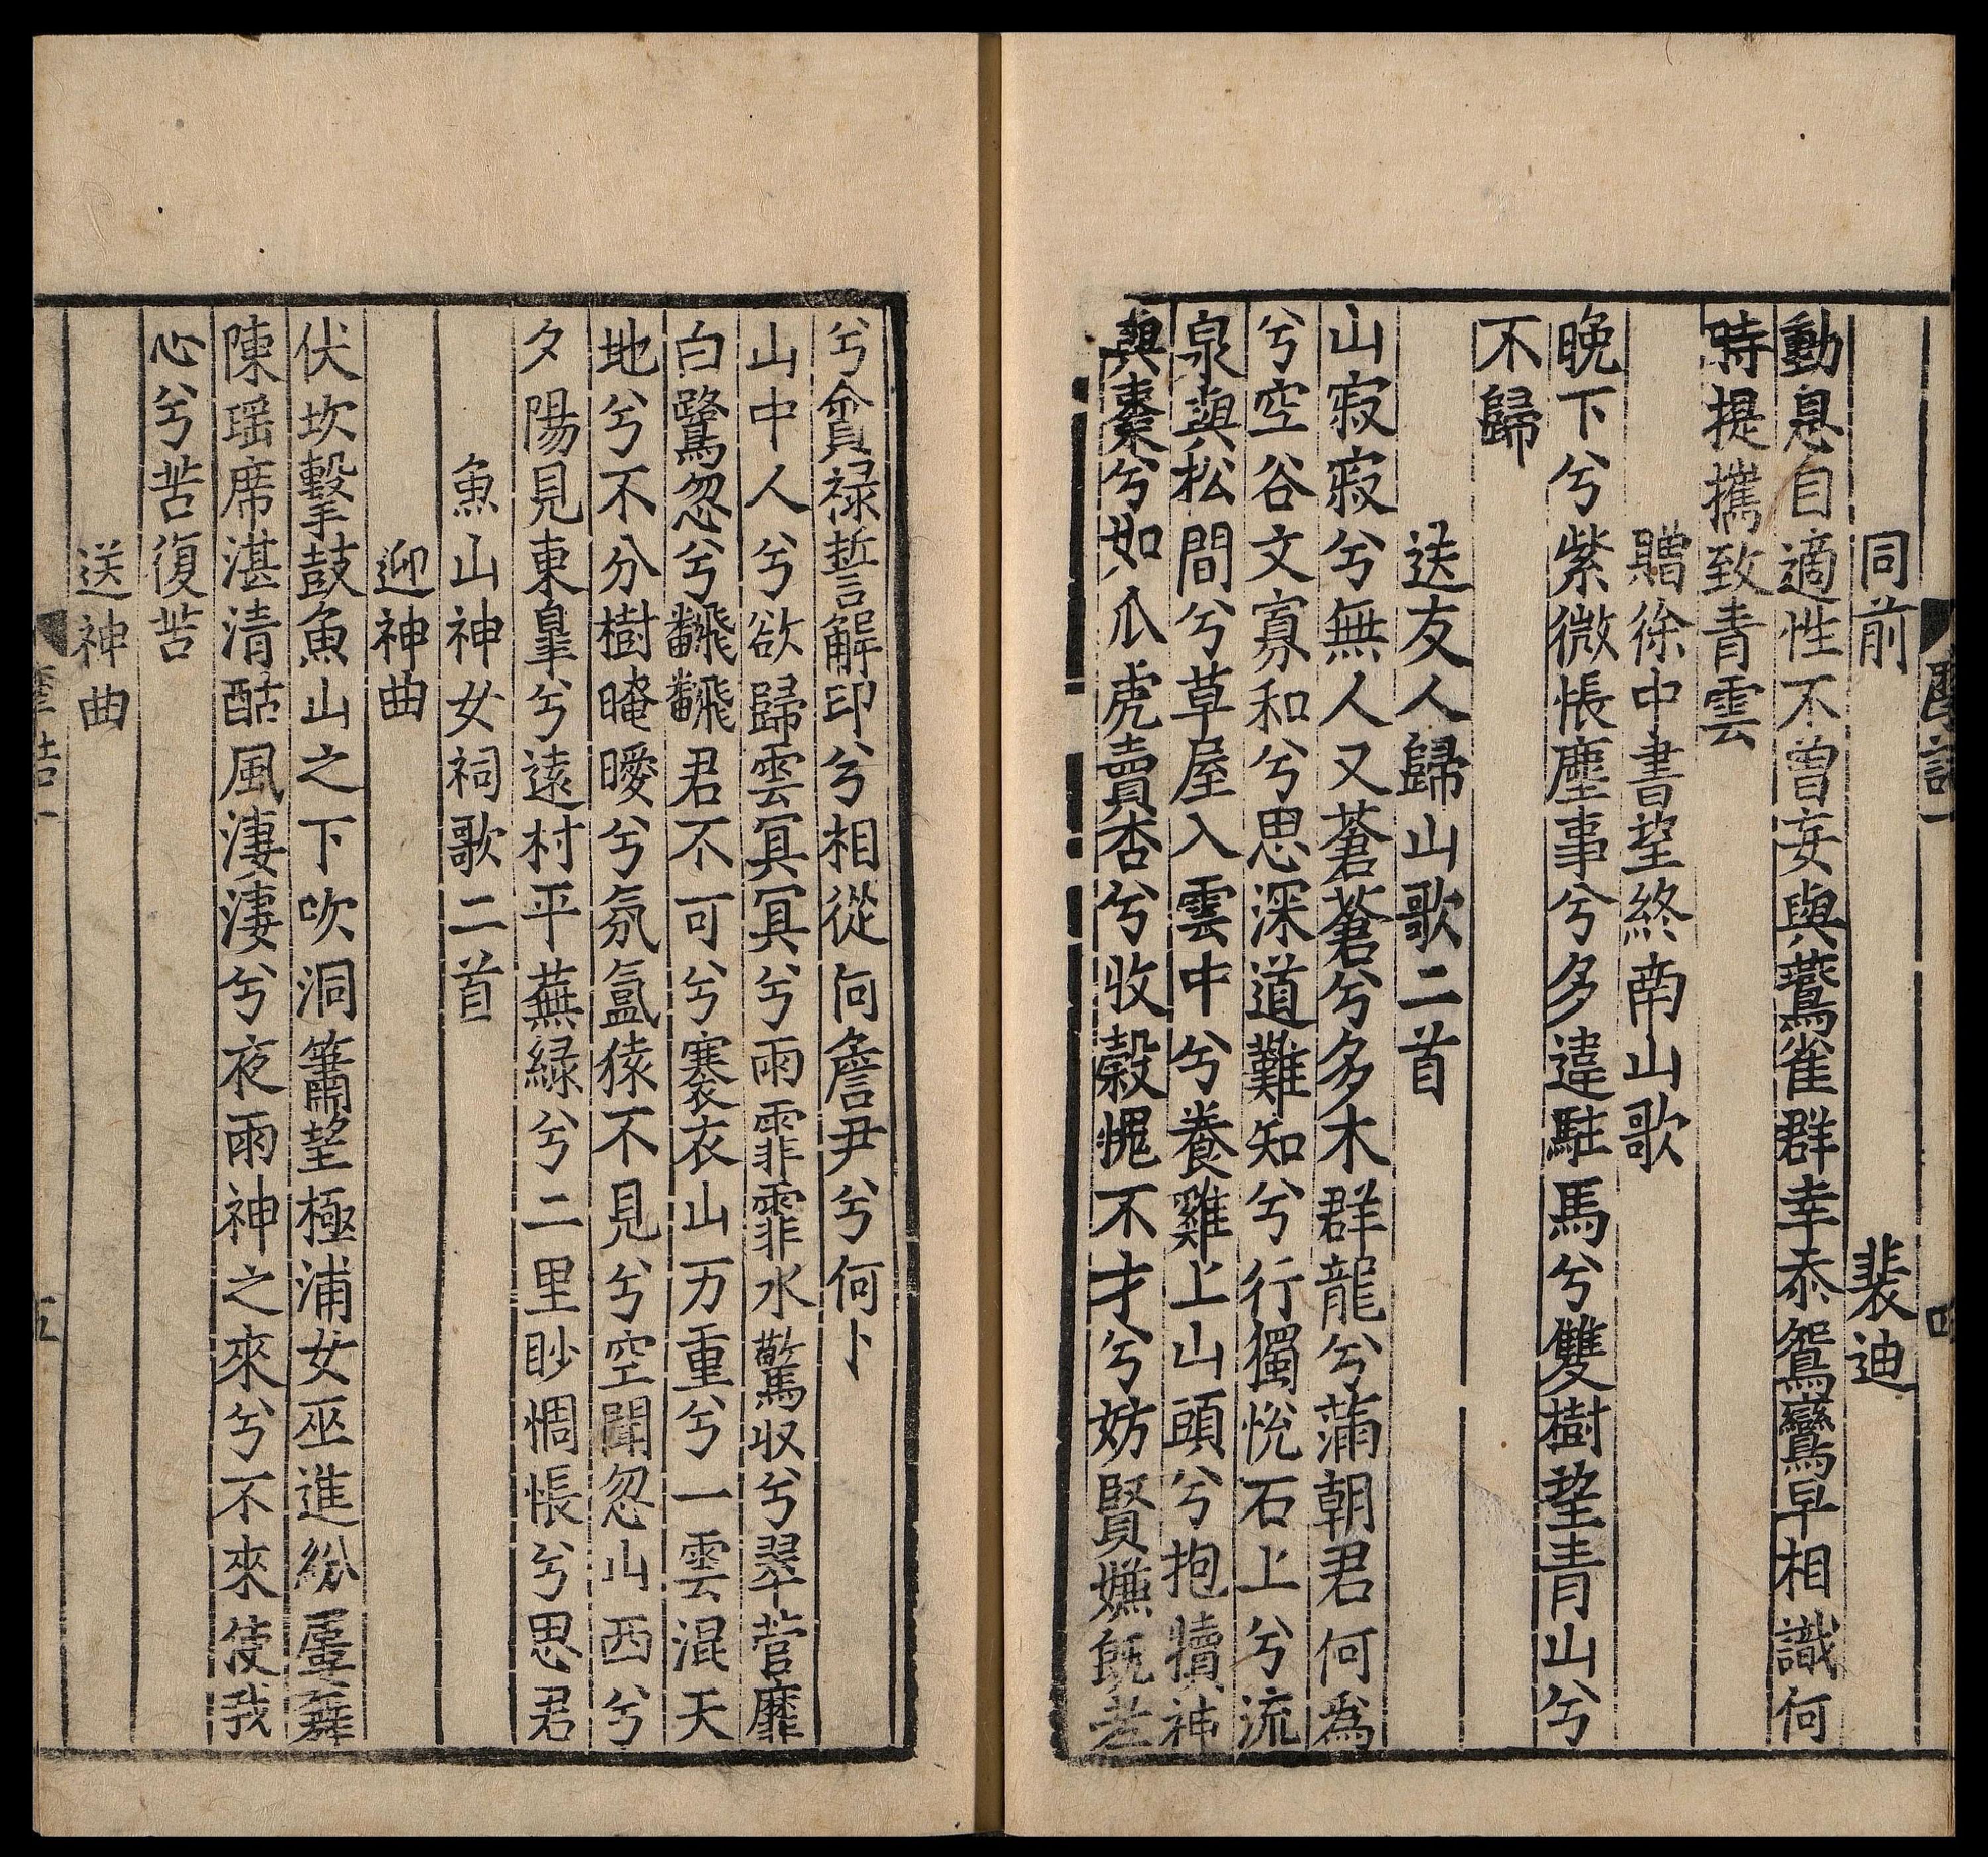 同前　裴迪
動息自適性不曾妄與鷰雀群幸忝鴛鸞早相識何
時提攜致青雲
贈徐中書望終南山歌
晚下兮紫微悵塵事兮多違駐馬兮雙樹望青山兮
不歸
送友人歸山歌二首
山寂寂兮無人又蒼蒼兮多木群龍兮滿朝君何爲
兮空谷文寡和兮思深道難知兮行獨恱石上兮流
泉與松間兮草屋入雲中兮養雞上山頭兮抱犢神
與棗兮如爪虎賣杏兮收穀愧不才兮妨賢嫌旣老
兮貪禄誓解印兮相從何詹尹兮何卜
山中人兮欲歸雲冥冥兮雨霏霏水驚収兮翠菅靡
白鷺忽兮飜飜君不可兮褰衣山万重兮一雲混天
地兮不分樹晻曖兮氛氳猿不見兮空聞忽山西兮
夕陽見東皐兮遠村平蕪緑兮二里眇惆悵兮思君
魚山神女祠歌二首
迎神曲
伏坎擊鼓魚山之下吹洞簫望極浦女巫進紛屢舞
陳瑶席湛清酤風淒淒兮夜雨神之來兮不來使我
心兮苦復苦
送神曲